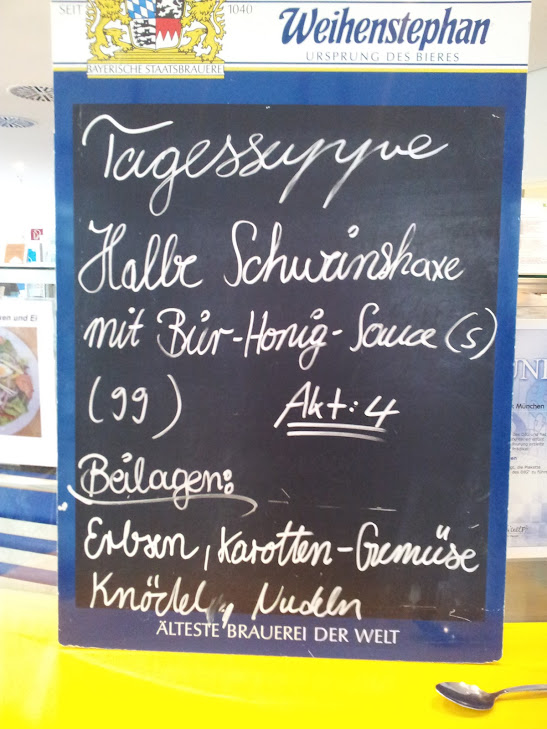 SEIT 1040
BAYERISCHE STAATSBRAUEREI
Weihenstephan
URSPRUNG DES BIERES
Tagessuppe
Halbe Schweinshaxe
mit Bier-Honig-Sauce (s)
(99) Akt: 4
Beilagen:
Erbsen, Karotten-Gemüse
Knödel, Nudeln
ÄLTESTE BRAUEREI DER WELT
und Ei
München